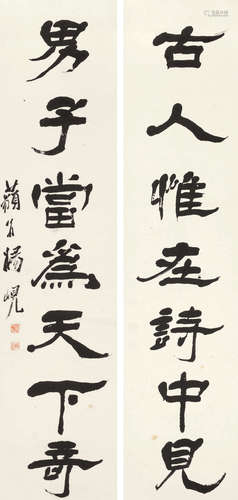 古人惟在詩中見
男子當爲天下奇
藐翁楊峴